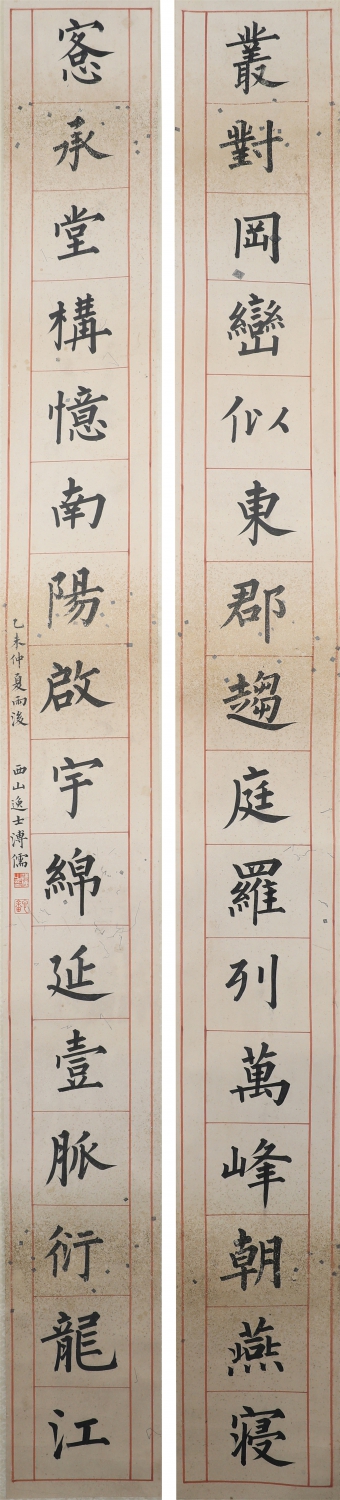 叢對岡巒似東郡趨庭羅列萬峰朝燕寢
窓承堂構憶南陽啟宇綿延壹脈衍龍江
乙未仲夏雨後 西山逸士溥儒